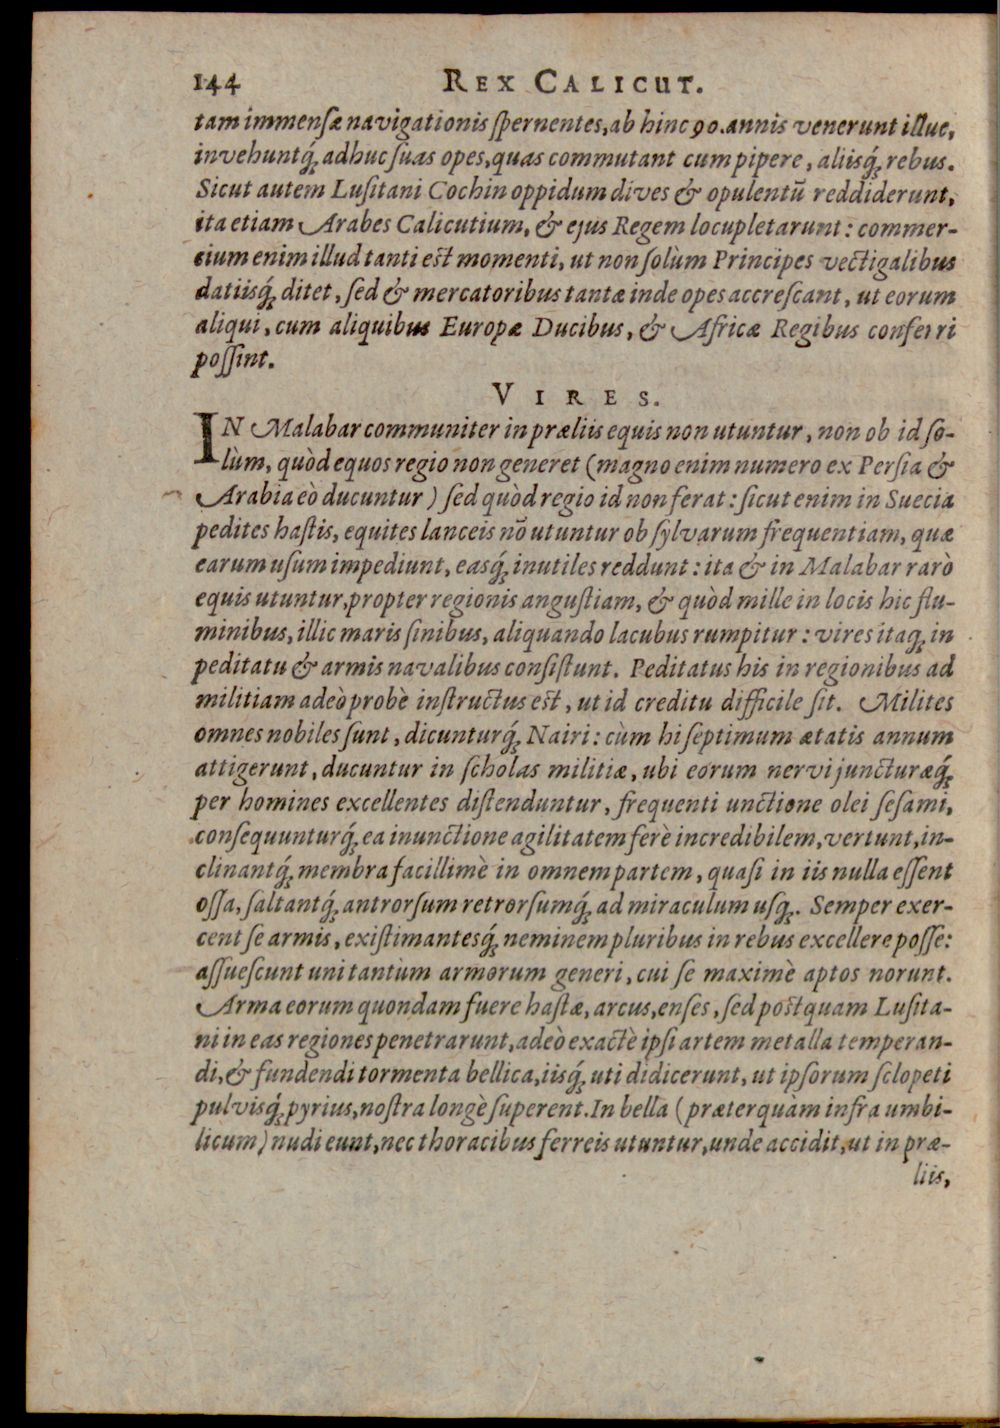 144 REX CALICUT.
tam immensæ navigationis spernentes, ab hinc 90. annis venerunt illuc,
invehuntq́ꝫ adhuc suas opes, quas commutant cum pipere, aliisq́ꝫ rebus.
Sicut autem Lusitani Cochin oppidum dives & opulentū reddiderunt,
ita etiam Arabes Calicutium, & ejus Regem locupletarunt: commer-
cium enim illud tanti est momenti, ut non solùm Principes vectigalibus
datiisq́ꝫ ditet, sed & mercatoribus tantæ inde opes accrescant, ut eorum
aliqui, cum aliquibus Europæ Ducibus, & Africæ Regibus conferri
possint.
VIRES.
IN Malabar communiter in præliis equis non utuntur, non ob id so-
lùm, quòd equos regio non generet (magno enim numero ex Persia &
Arabia eò ducuntur) sed quòd regio id non ferat: sicut enim in Suecia
pedites hastis, equites lanceis nō utuntur ob sylvarum frequentiam, quæ
earum usum impediunt, easq́ꝫ inutiles reddunt: ita & in Malabar rarò
equis utuntur, propter regionis angustiam, & quòd mille in locis hic flu-
minibus, illic maris sinibus, aliquando lacubus rumpitur: vires itaqꝫ in
peditatu & armis navalibus consistunt. Peditatus his in regionibus ad
militiam adeò probè instructus est, ut id creditu difficile sit. Milites
omnes nobiles sunt, dicunturq́ꝫ Nairi: cùm hi septimum ætatis annum
attigerunt, ducuntur in scholas militiæ, ubi eorum nervi juncturæq́ꝫ
per homines excellentes distenduntur, frequenti unctione olei sesami,
consequunturq́ꝫ ea inunctione agilitatem ferè incredibilem, vertunt, in-
clinantq́ꝫ membra facillimè in omnem partem, quasi in iis nulla essent
ossa, saltantq́ꝫ antrorsum retrorsumq́ꝫ ad miraculum usqꝫ. Semper exer-
cent se armis, existimantesq́ꝫ neminem pluribus in rebus excellere posse:
assuescunt uni tantùm armorum generi, cui se maximè aptos norunt.
Arma eorum quondam fuere hastæ, arcus, enses, sed postquam Lusita-
ni in eas regiones penetrarunt, adeò exactè ipsi artem metalla temperan-
di, & fundendi tormenta bellica, iisq́ꝫ uti didicerunt, ut ipsorum sclopeti
pulvisq́ꝫ pyrius, nostra longè superent. In bella (præterquàm infra umbi-
licum) nudi eunt, nec thoracibus ferreis utuntur, unde accidit, ut in præ-
liis,